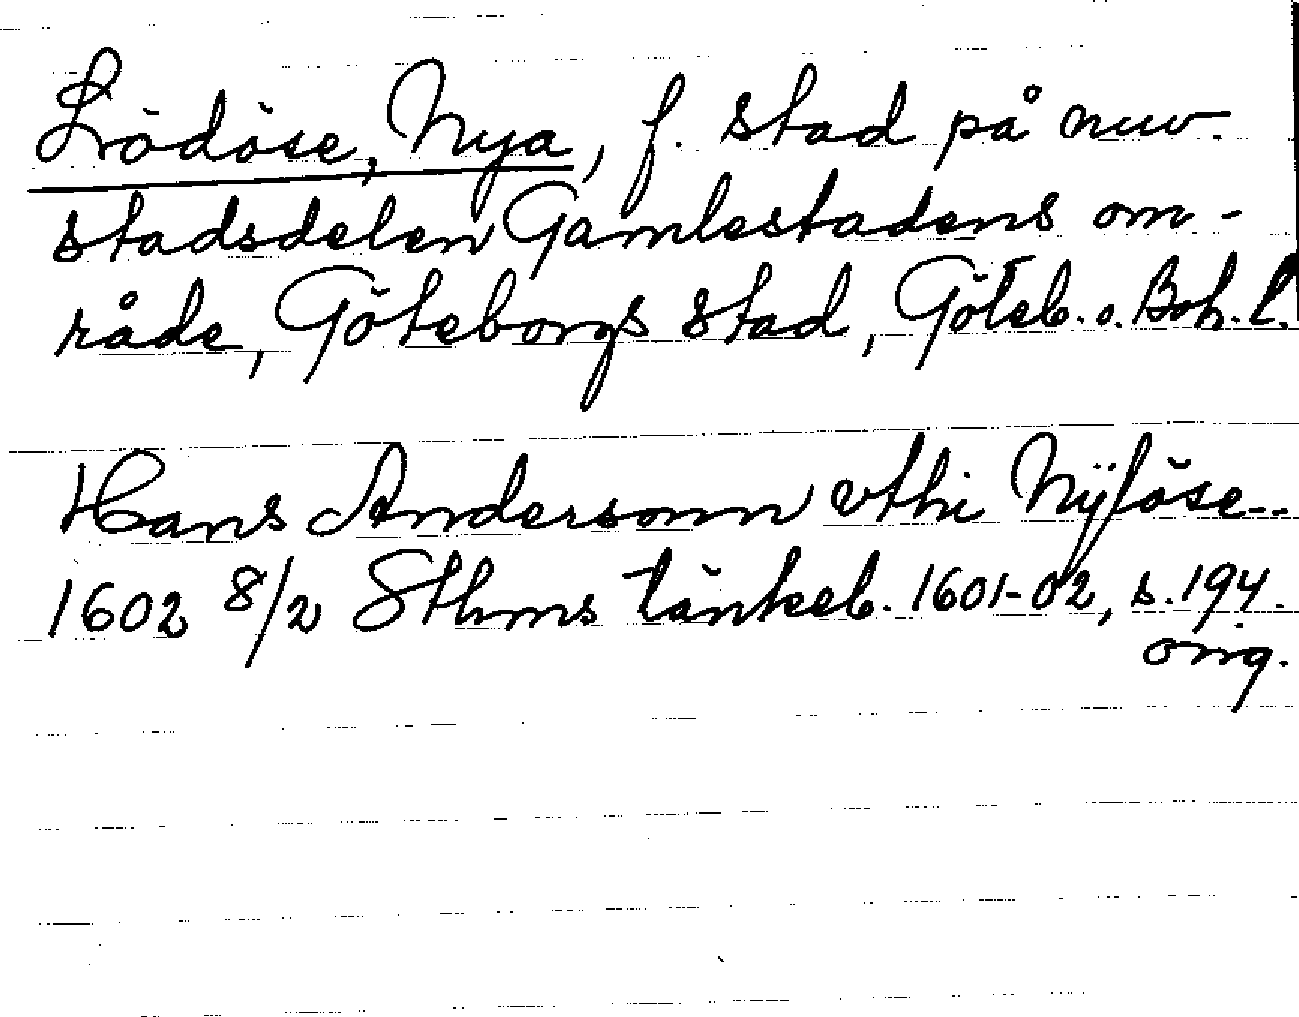 Lödöse, Nya, f. stad på nuv.
stadsdelen Gamlestadens om-
råde, Göteborgs stad, Göteb. o. Boh. l.
Hans Andersonn vthi Nÿlöse--
1602 8/2 Sthms tänkeb. 1601-02, s. 194.
orig.